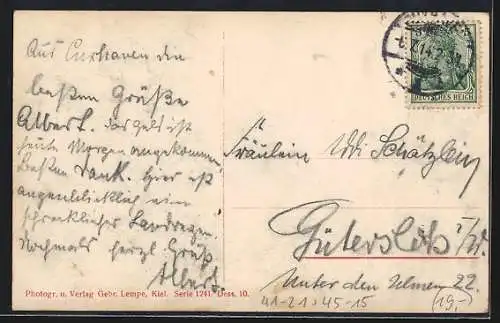 Aus Cuxhaven die
besten Grüße
Albert. Das Geld ist
heute Morgen angekommen
Besten Dank. Hier ist
augenblicklich ein
schrecklicher Landregen.
Nochmals herzl. Gruß
Albert.
DEUTSCHES REICH
Fräulein Schätzlein
Gütersloh i/W.
Unter den Ulmen 22.
(19,-)
41-21:45-15
Photogr. u. Verlag Gebr. Lempe, Kiel. Serie 1241. Dess. 10.